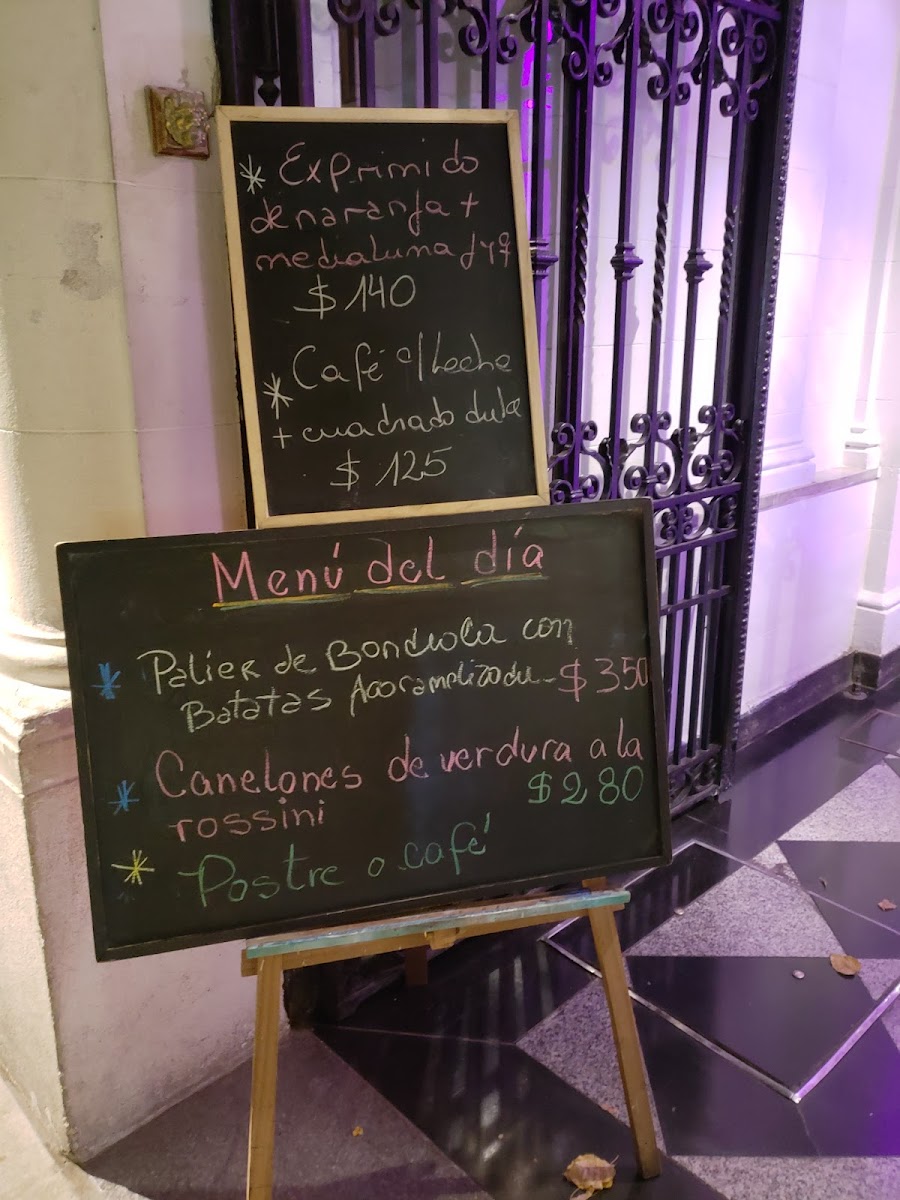 * Exprimido
de naranja +
medialuna J y Q
$ 140
* Café c/Leche
+ cuadrado dulce
$ 125
Menú del día
* Palier de Bondiola con
Batatas $350
* Canelones de verdura a la
rossini $280
* Postre o café